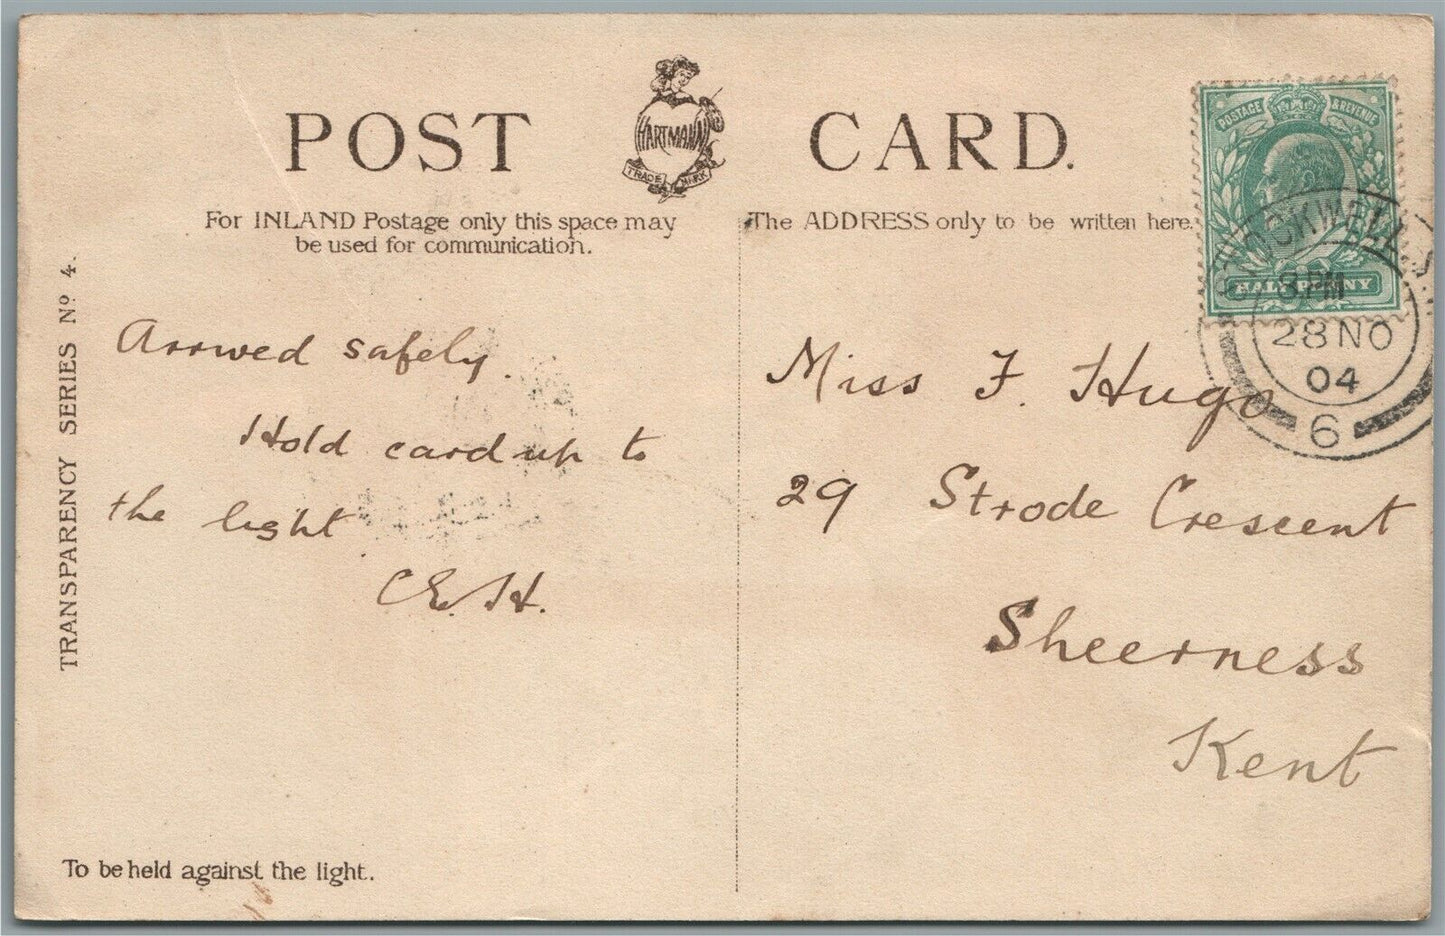 POST CARD.
HARTMANN
TRADE MARK
For INLAND Postage only this space may
be used for communication.
The ADDRESS only to be written here.
POSTAGE & REVENUE
HALF PENNY
8.PM
28 NO
04
6
TRANSPARENCY SERIES Nº 4.
Arrived safely.
Hold card up to
the light.
C.E.H.
Miss F. Hugo
29 Strode Crescent
Sheerness
Kent
To be held against the light.